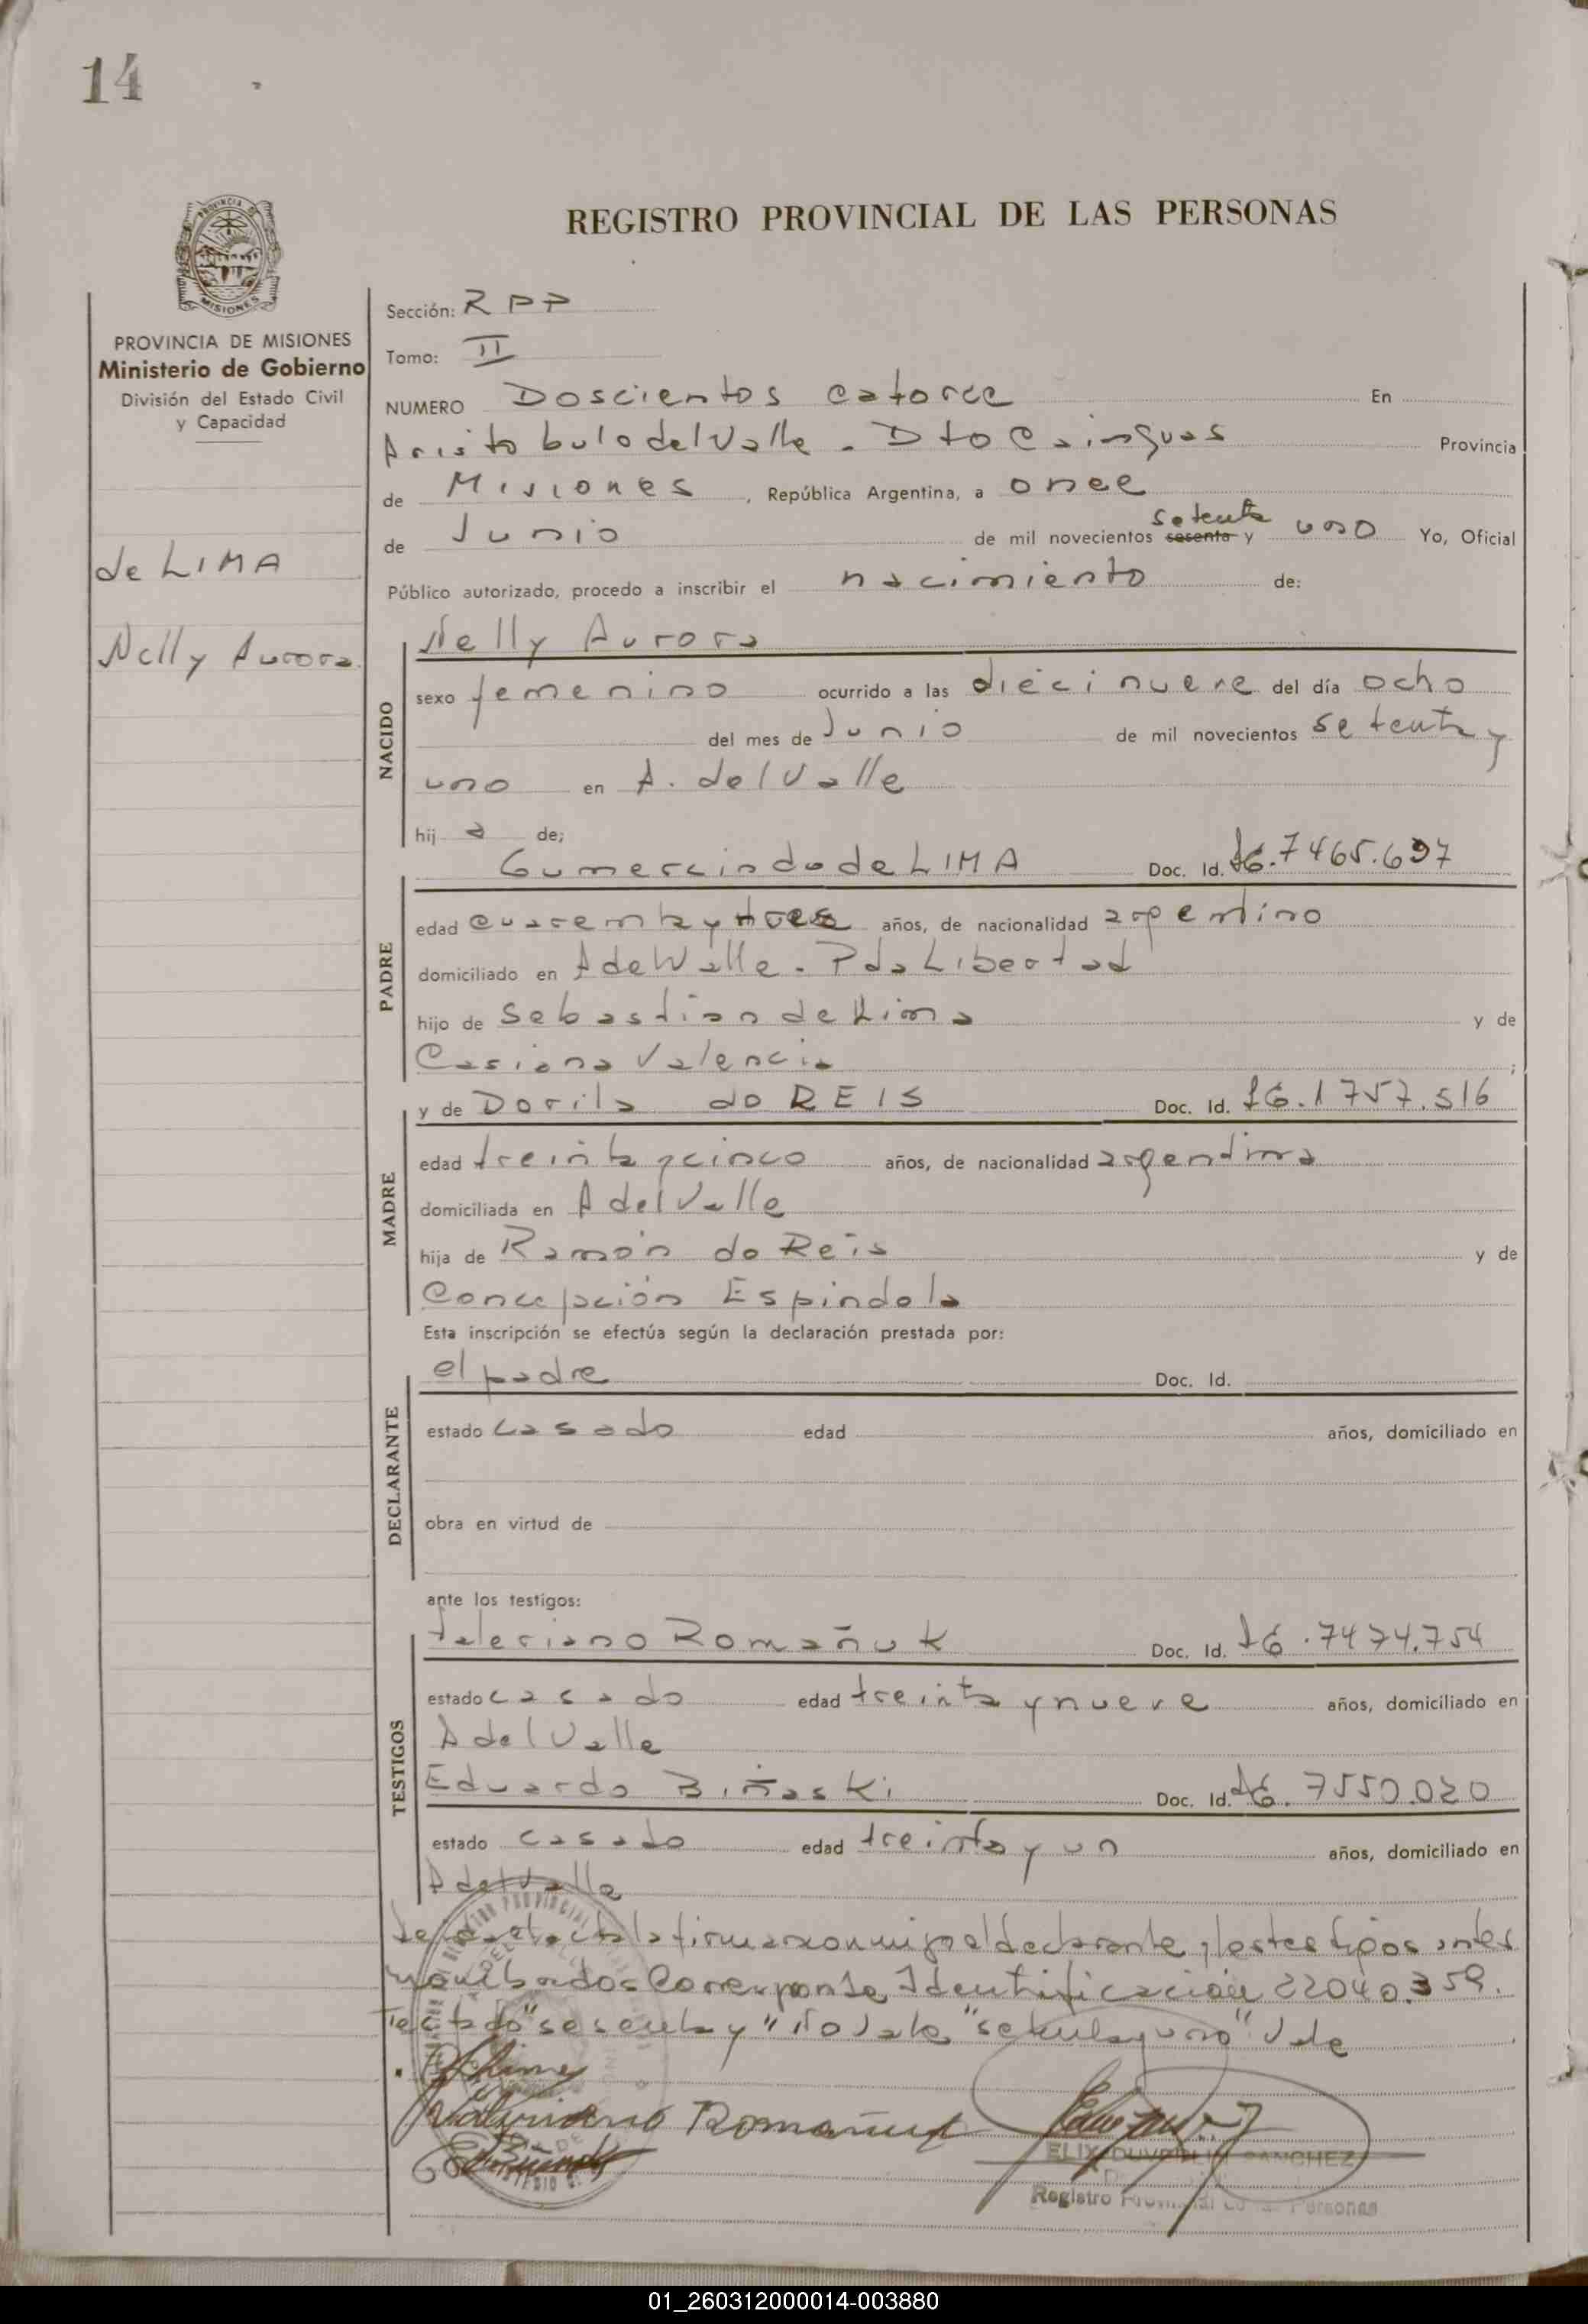 14
REGISTRO PROVINCIAL DE LAS PERSONAS
PROVINCIA DE MISIONES
Ministerio de Gobierno
División del Estado Civil
y Capacidad
de LIMA
Nelly Aurora
Sección: RPP
Tomo: II
NUMERO Doscientos catorce En
Aristobulo del Valle - Dto Cainguas Provincia
de Misiones, República Argentina, a once
de Junio de mil novecientos sesenta setenta y uno Yo, Oficial
Público autorizado, procedo a inscribir el nacimiento de:
NACIDO
Nelly Aurora
sexo femenino ocurrido a las diecinueve del día ocho
del mes de Junio de mil novecientos setenta y
uno en A. del Valle
hija de;
PADRE
Gumercindo de LIMA Doc. Id. 7465.697
edad cuarenta y tres años, de nacionalidad argentino
domiciliado en A del Valle - Pda Libertad
hijo de Sebastian de Lima y de
Casiana Valencia ;
MADRE
y de Dorila do REIS Doc. Id. 1757.516
edad treinta y cinco años, de nacionalidad argentina
domiciliada en A del Valle
hija de Ramón do Reis y de
Concepción Espindola
Esta inscripción se efectúa según la declaración prestada por:
DECLARANTE
el padre Doc. Id.
estado casado edad años, domiciliado en
obra en virtud de
ante los testigos:
TESTIGOS
Valeriano Romañuk Doc. Id. 7474.754
estado casado edad treinta y nueve años, domiciliado en
A del Valle
Eduardo Biñaski Doc. Id. 7550.020
estado casado edad treinta y un años, domiciliado en
A del Valle
Leida el acta la firman conmigo el declarante y los testigos antes
nombrados Corresponde Identificación 22040.359.
Testado "sesenta y" No Vale "setenta y uno" Vale
Valeriano Romañuk
ELIX DUVIRGILIO SANCHEZ
Registro Provincial de las Personas
01_260312000014-003880